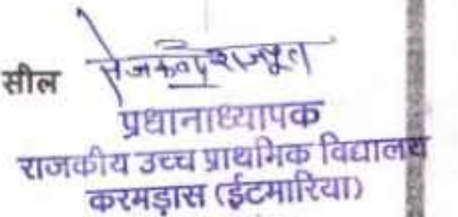 सील
प्रधानाध्यापक
राजकीय उच्च प्राथमिक विद्यालय
करमड़ास (ईटमारिया)